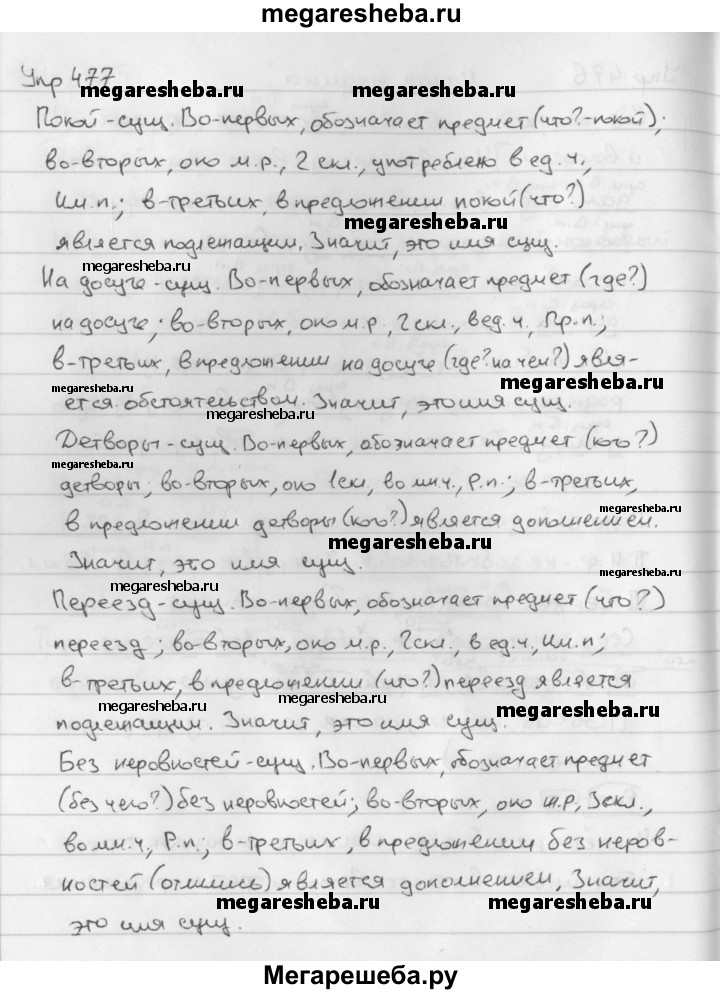 megaresheba.ru
Упр 477
megaresheba.ru megaresheba.ru
Покой-сущ. Во-первых, обозначает предмет (что?-покой);
во-вторых, оно м.р., 2 скл., употреблено в ед.ч.,
Им.п.; в-третьих, в предложении покой (что?)
megaresheba.ru
является подлежащим. Значит, это имя сущ.
megaresheba.ru
На досуге-сущ. Во-первых, обозначает предмет (где?)
на досуге; во-вторых, оно м.р., 2 скл., в ед.ч., Пр.п.;
в-третьих, в предложении на досуге (где? на чем?) явля-
megaresheba.ru megaresheba.ru
ется обстоятельством. Значит, это имя сущ.
megaresheba.ru
Детворы-сущ. Во-первых, обозначает предмет (кого?)
megaresheba.ru
детворы; во-вторых, оно 1 скл, во мн.ч., Р.п.; в-третьих,
megaresheba.ru
в предложении детворы (кого?) является дополнением.
megaresheba.ru
Значит, это имя сущ.
megaresheba.ru megaresheba.ru
Переезд-сущ. Во-первых, обозначает предмет (что?)
переезд; во-вторых, оно м.р., 2 скл., в ед.ч., Им.п;
в-третьих, в предложении (что?) переезд является
megaresheba.ru megaresheba.ru
подлежащим. Значит, это имя сущ.
megaresheba.ru
Без неровностей-сущ. Во-первых, обозначает предмет
(без чего?) без неровностей; во-вторых, оно ж.р, 3 скл.,
во мн.ч, Р.п.; в-третьих, в предложении без неров-
ностей является дополнением. Значит,
megaresheba.ru megaresheba.ru
это имя сущ.
Мегарешеба.ру